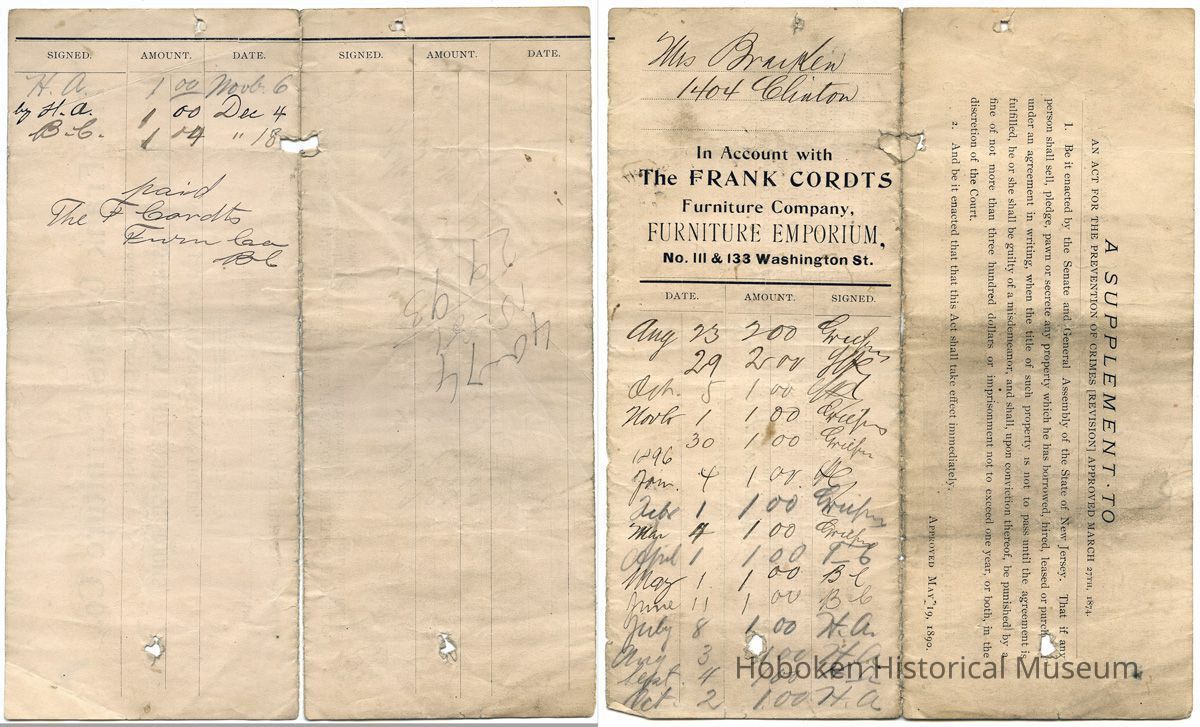 SIGNED. AMOUNT. DATE. SIGNED. AMOUNT. DATE.
H. A. 1 00 Novbr. 6
by H. A. 1 00 Dec 4
B. C. 1 04 " 18
paid
The F Cordts
Furn Co
BC
Mrs Bracken
1404 Clinton
In Account with
The FRANK CORDTS
Furniture Company,
FURNITURE EMPORIUM,
No. 111 & 133 Washington St.
DATE. AMOUNT. SIGNED.
Aug 23 2 00
29 2 00
Oct. 5 1 00
Novbr 1 1 00
30 1 00
1896
Jan. 4 1 00.
Febr 1 1 00
Mar 4 1 00
April 1 1 00
May 1. 1 00 B C
June 11 1 00 B C
July 8 1 00 H. A.
Aug 3 1 00 H. A.
Sept 4 1 00
Oct. 2 1.00 H. A
A SUPPLEMENT TO
AN ACT FOR THE PREVENTION OF CRIMES [REVISION] APPROVED MARCH 27TH, 1874.
1. Be it enacted by the Senate and General Assembly of the State of New Jersey. That if any
person shall sell, pledge, pawn or secrete any property which he has borrowed, hired, leased or purch
under an agreement in writing, when the title of such property is not to pass until the agreement is
fulfilled, he or she shall be guilty of a misdemeanor, and shall, upon conviction thereof, be punished by a
fine of not more than three hundred dollars or imprisonment not to exceed one year, or both, in the
discretion of the Court.
2. And be it enacted that that this Act shall take effect immediately.
APPROVED MAY 19, 1890.
Hoboken Historical Museum